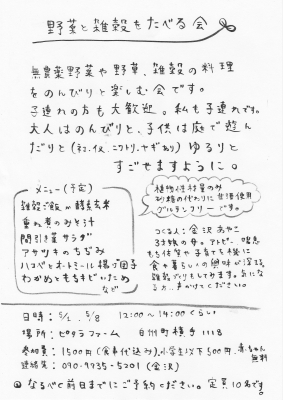 野菜と雑穀をたべる会
無農薬野菜や野草、雑穀の料理
をのんびりと楽しむ会です。
子連れの方も大歓迎。私も子連れです。
大人はのんびりと、子供は庭で遊ん
だりと(ネコ、イヌ、ニワトリ、ヤギあり)ゆるりと
すごせますように。
メニュー(予定)
雑穀ご飯 or 酵素玄米
重ね煮のみそ汁
間引き菜サラダ
アサツキのちぢみ
ハコベとオートミール揚げ団子
わかめともちキビいため
など
植物性材料のみ
砂糖の代わりに甘酒使用
グルテンフリーです。
つくる人：金沢あやこ
3姉妹の母。アトピー、喘息
もち体質や子育てを機に
食や暮らしへの興味が深まる
雑穀づくりもしてます。気にな
る方、声かけてください。
日時：5/2、5/8 12:00〜14:00くらい
場所：ピタラファーム 白州町横手1118
参加費：1500円(食事代込み)、小学生以下500円、赤ちゃん無料
連絡先：090-9735-5201(金沢)
なるべく前日までにご予約ください。定員10名です。